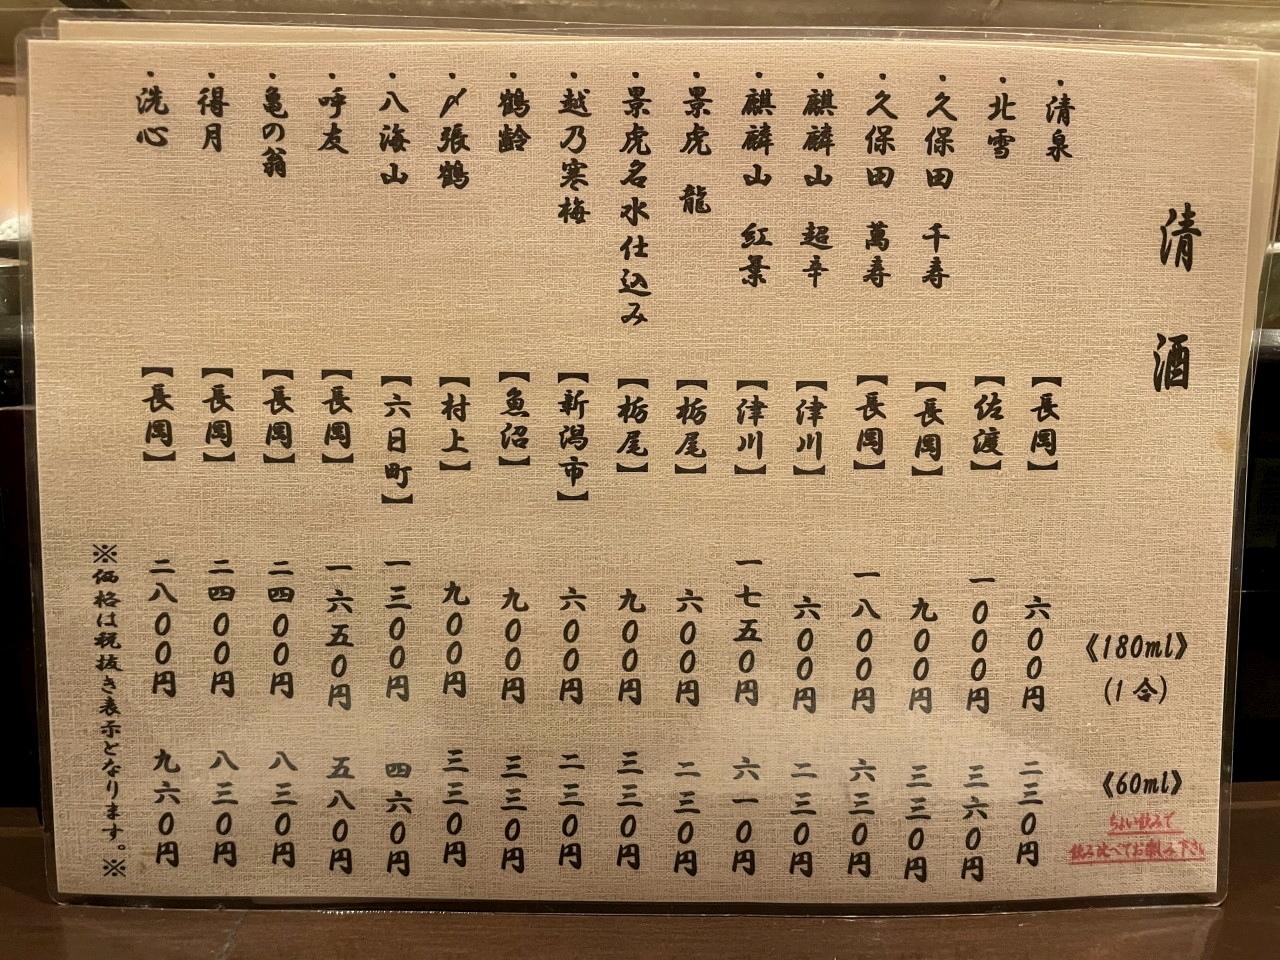 清 酒
《180ml》
(1合)
《60ml》
ちょい飲みで
飲み比べてお楽しみ下さい
・清泉 【長岡】 六〇〇円 二三〇円
・北雪 【佐渡】 一〇〇〇円 三六〇円
・久保田 千寿 【長岡】 九〇〇円 三三〇円
・久保田 萬寿 【長岡】 一八〇〇円 六三〇円
・麒麟山 超辛 【津川】 六〇〇円 二三〇円
・麒麟山 紅葉 【津川】 一七五〇円 六一〇円
・景虎 龍 【栃尾】 六〇〇円 二三〇円
・景虎名水仕込み 【栃尾】 九〇〇円 三三〇円
・越乃寒梅 【新潟市】 六〇〇円 二三〇円
・鶴齢 【魚沼】 九〇〇円 三三〇円
・〆張鶴 【村上】 九〇〇円 三三〇円
・八海山 【六日町】 一三〇〇円 四六〇円
・呼友 【長岡】 一六五〇円 五八〇円
・亀の翁 【長岡】 二四〇〇円 八三〇円
・得月 【長岡】 二四〇〇円 八三〇円
・洗心 【長岡】 二八〇〇円 九六〇円
※価格は税抜き表示となります。※